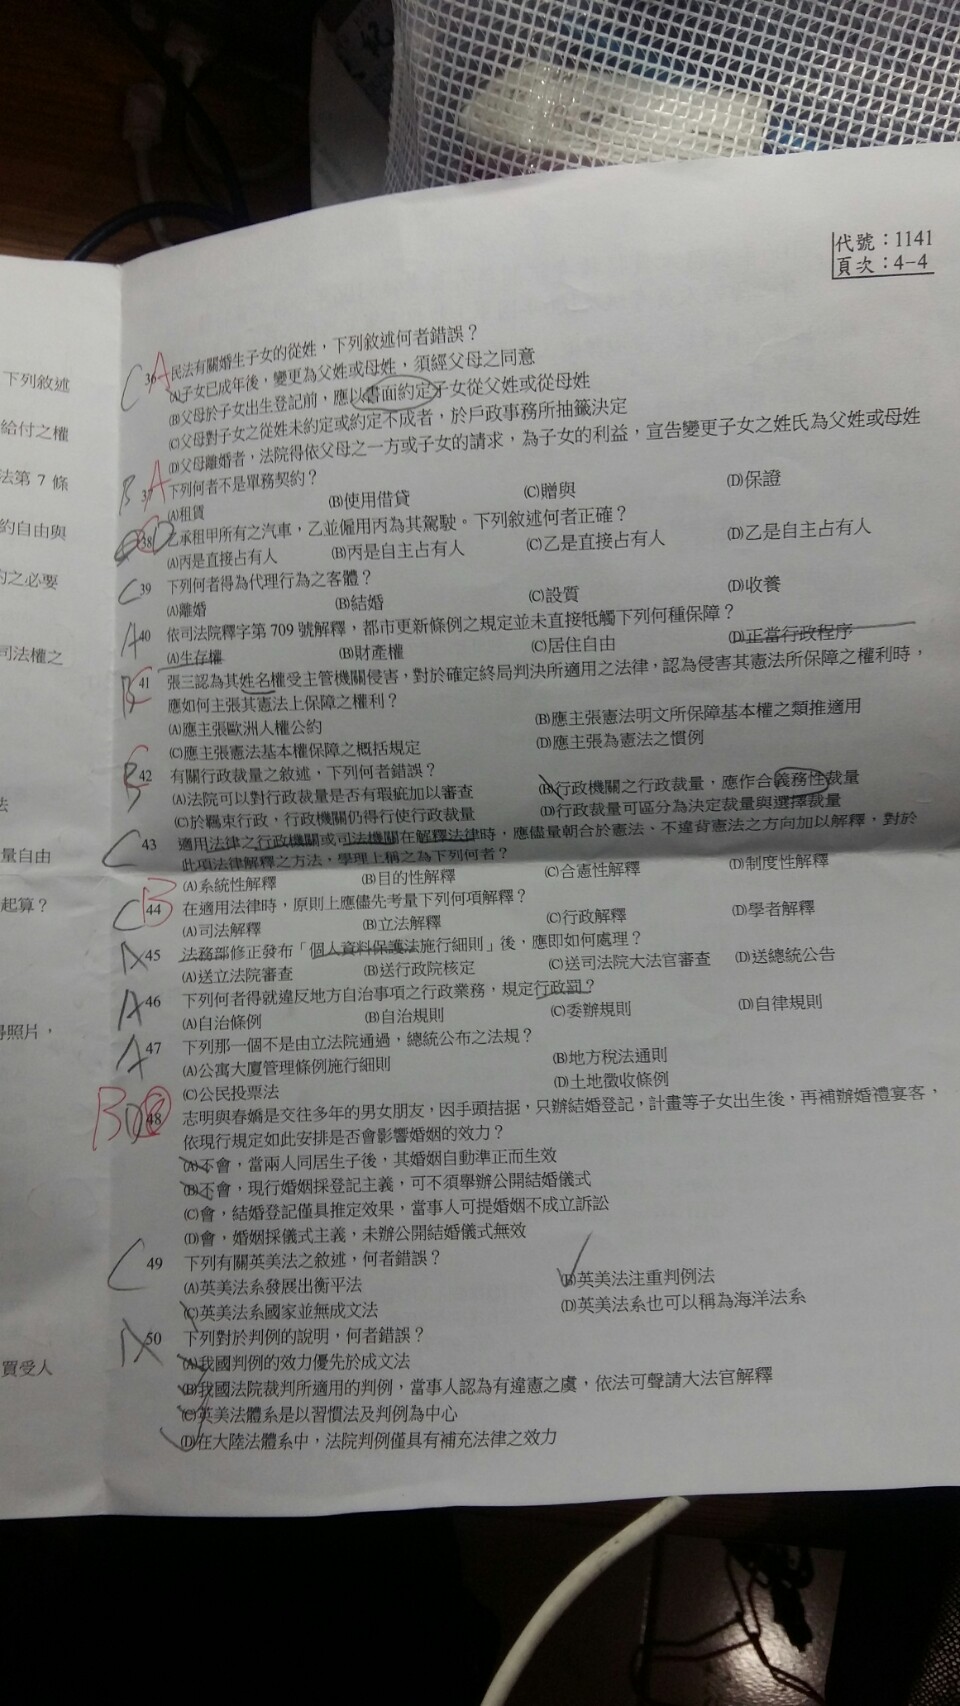 代號：1141
頁次：4-4
C A 36 民法有關婚生子女的從姓，下列敘述何者錯誤？
(A)子女已成年後，變更為父姓或母姓，須經父母之同意
(B)父母於子女出生登記前，應以書面約定子女從父姓或從母姓
(C)父母對子女之從姓未約定或約定不成者，於戶政事務所抽籤決定
(D)父母離婚者，法院得依父母之一方或子女的請求，為子女的利益，宣告變更子女之姓氏為父姓或母姓
B A 37 下列何者不是單務契約？
(A)租賃 (B)使用借貸 (C)贈與 (D)保證
38 乙承租甲所有之汽車，乙並僱用丙為其駕駛。下列敘述何者正確？
(A)丙是直接占有人 (B)丙是自主占有人 (C)乙是直接占有人 (D)乙是自主占有人
C 39 下列何者得為代理行為之客體？
(A)離婚 (B)結婚 (C)設質 (D)收養
A 40 依司法院釋字第 709 號解釋，都市更新條例之規定並未直接牴觸下列何種保障？
(A)生存權 (B)財產權 (C)居住自由 (D)正當行政程序
B C 41 張三認為其姓名權受主管機關侵害，對於確定終局判決所適用之法律，認為侵害其憲法所保障之權利時，
應如何主張其憲法上保障之權利？
(A)應主張歐洲人權公約 (B)應主張憲法明文所保障基本權之類推適用
(C)應主張憲法基本權保障之概括規定 (D)應主張為憲法之慣例
B C 42 有關行政裁量之敘述，下列何者錯誤？
(A)法院可以對行政裁量是否有瑕疵加以審查 (B)行政機關之行政裁量，應作合義務性裁量
(C)於羈束行政，行政機關仍得行使行政裁量 (D)行政裁量可區分為決定裁量與選擇裁量
C 43 適用法律之行政機關或司法機關在解釋法律時，應儘量朝合於憲法、不違背憲法之方向加以解釋，對於
此項法律解釋之方法，學理上稱之為下列何者？
(A)系統性解釋 (B)目的性解釋 (C)合憲性解釋 (D)制度性解釋
C B 44 在適用法律時，原則上應儘先考量下列何項解釋？
(A)司法解釋 (B)立法解釋 (C)行政解釋 (D)學者解釋
A 45 法務部修正發布「個人資料保護法施行細則」後，應即如何處理？
(A)送立法院審查 (B)送行政院核定 (C)送司法院大法官審查 (D)送總統公告
A 46 下列何者得就違反地方自治事項之行政業務，規定行政罰？
(A)自治條例 (B)自治規則 (C)委辦規則 (D)自律規則
A 47 下列那一個不是由立法院通過，總統公布之法規？
(A)公寓大廈管理條例施行細則 (B)地方稅法通則
(C)公民投票法 (D)土地徵收條例
B D 48 志明與春嬌是交往多年的男女朋友，因手頭拮据，只辦結婚登記，計畫等子女出生後，再補辦婚禮宴客，
依現行規定如此安排是否會影響婚姻的效力？
(A)不會，當兩人同居生子後，其婚姻自動準正而生效
(B)不會，現行婚姻採登記主義，可不須舉辦公開結婚儀式
(C)會，結婚登記僅具推定效果，當事人可提婚姻不成立訴訟
(D)會，婚姻採儀式主義，未辦公開結婚儀式無效
C 49 下列有關英美法之敘述，何者錯誤？
(A)英美法系發展出衡平法 (B)英美法注重判例法
(C)英美法系國家並無成文法 (D)英美法系也可以稱為海洋法系
A 50 下列對於判例的說明，何者錯誤？
(A)我國判例的效力優先於成文法
(B)我國法院裁判所適用的判例，當事人認為有違憲之虞，依法可聲請大法官解釋
(C)英美法體系是以習慣法及判例為中心
(D)在大陸法體系中，法院判例僅具有補充法律之效力
下列敘述
給付之權
法第 7 條
約自由與
之必要
司法權之
法
量自由
起算？
得照片，
買受人